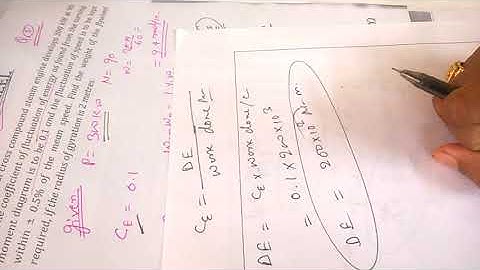 cross compound steam engine develops 300 kW at 90
The coefficient of fluctuation of energy as found from the turning
moment diagram is to be 0.1 and the fluctuation of speed is to be kept
within ± 0.5% of the mean speed. Find the weight of the flywheel
required, if the radius of gyration is 2 metres.
given
P = 300 KW N = 90
C_E = 0.1
C_E = DE / work done/
DE = C_E x work done/c
= 0.1 x 200x10³
DE = 200x10² N-m.